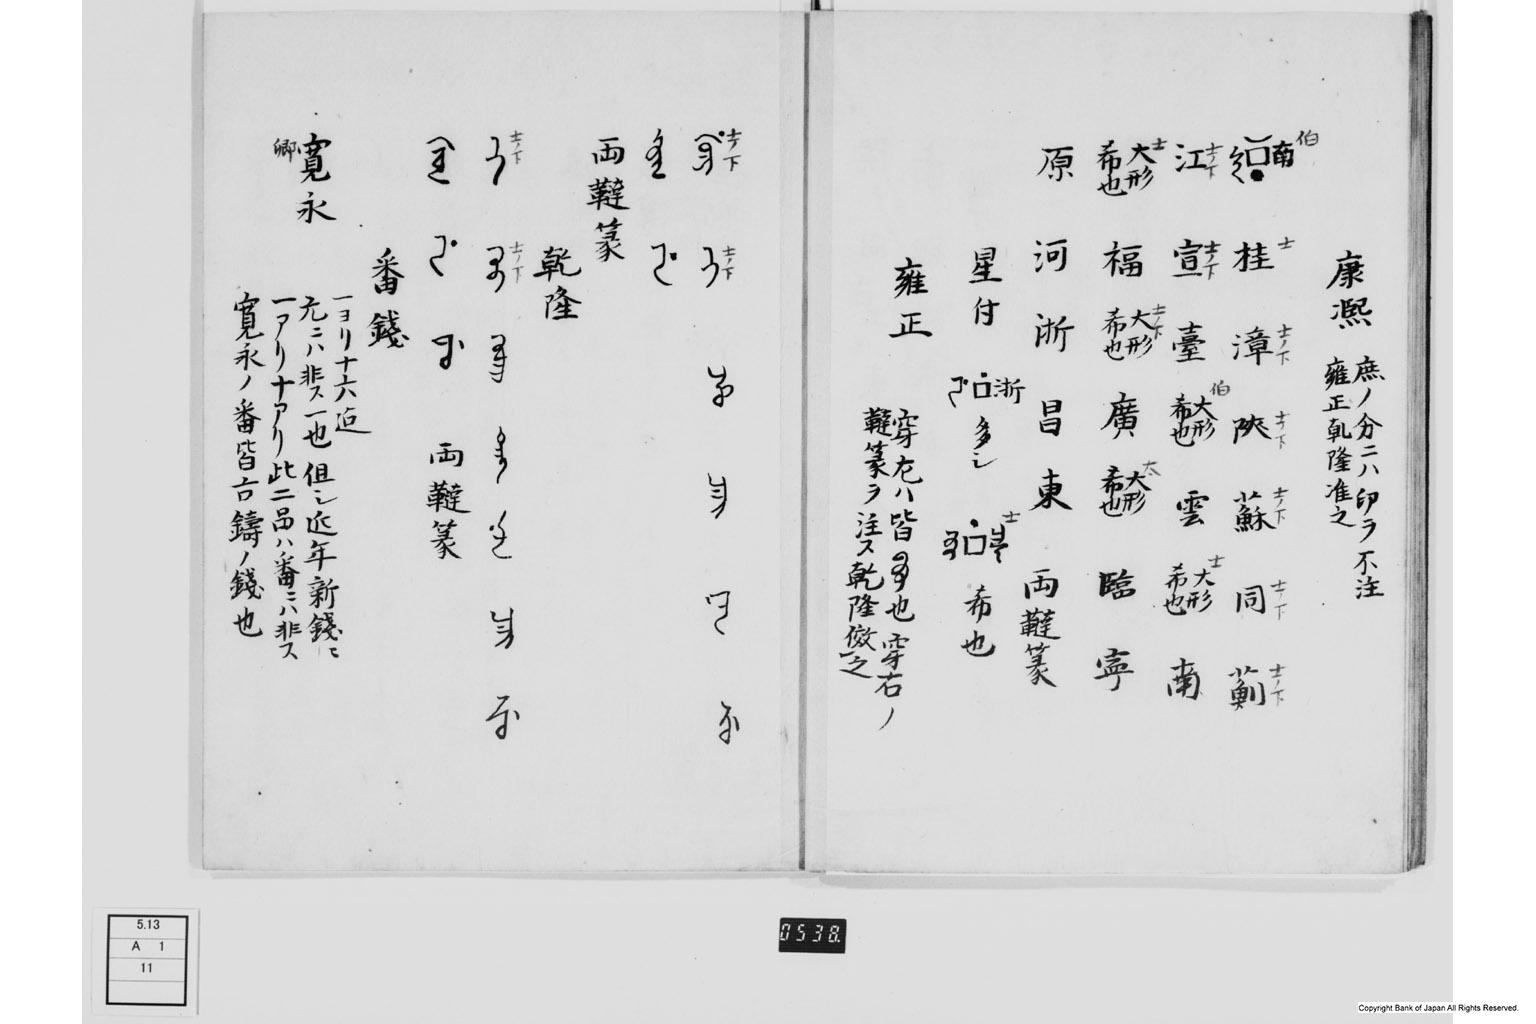 康熙
庶ノ分ニハ印ヲ不注
雍正乾隆准之
伯
南
桂 士
漳 士ノ下
陝 士ノ下
蘇 士ノ下
同 士ノ下
薊 士ノ下
江 士ノ下
宣 士ノ下
臺
伯
大形
希也
雲
士
大形
希也
南
士
大形
希也
福
士ノ下
大形
希也
廣
大
大形
希也
臨
寧
原
河
浙
昌
東
両韃篆
星付
浙
多シ
士
希也
雍正
穿左ハ皆也穿右ノ
韃篆ヲ注ス乾隆倣之
士ノ下
士ノ下
両韃篆
乾隆
士ノ下
士ノ下
両韃篆
番錢
寛永
郷
一ヨリ十六迄
尤ニハ非ス一也但シ近年新錢ニ
一アリ十アリ此二品ハ番ニハ非ス
寛永ノ番皆古鑄ノ錢也
5.13
A 1
11
0538.
Copyright Bank of Japan All Rights Reserved.